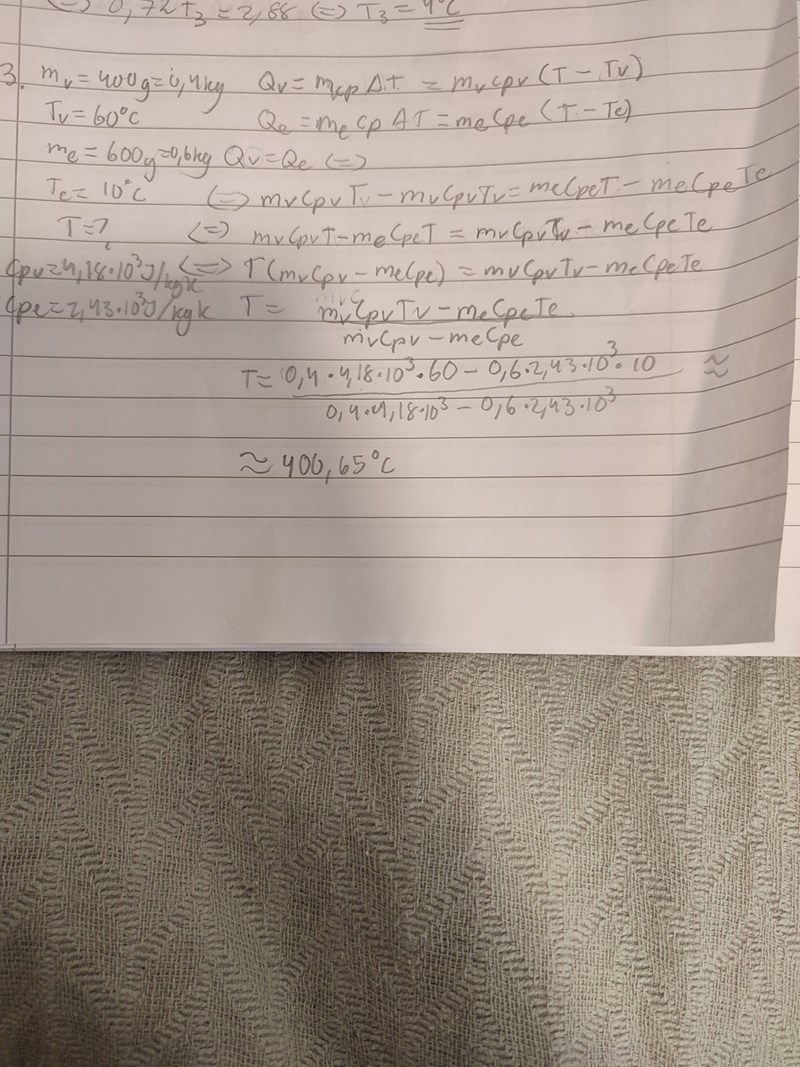 ⇔ 0,72t₃ = 2,88 ⇔ T₃ = 4°C
3. mv = 400g = 0,4kg Qv = mcpΔT = mvcpv (T - Tv)
Tv = 60°C Qe = mecpΔT = mecpe (T - Te)
me = 600g = 0,6kg Qv = Qe ⇔
Te = 10°C ⇔ mvCpvTv - mvCpvTv = meCpeT - meCpeTe
T = ? ⇔ mvCpvT - meCpeT = mvCpvTv - meCpeTe
Cpv = 4,18·10³J/kgK ⇔ T(mvCpv - meCpe) = mvCpvTv - meCpeTe
Cpe = 2,43·10³J/kgK T = mvCpvTv - meCpeTe
mvCpv - meCpe
T = 0,4·4,18·10³·60 - 0,6·2,43·10³·10 ≈
0,4·4,18·10³ - 0,6·2,43·10³
≈ 400,65°C